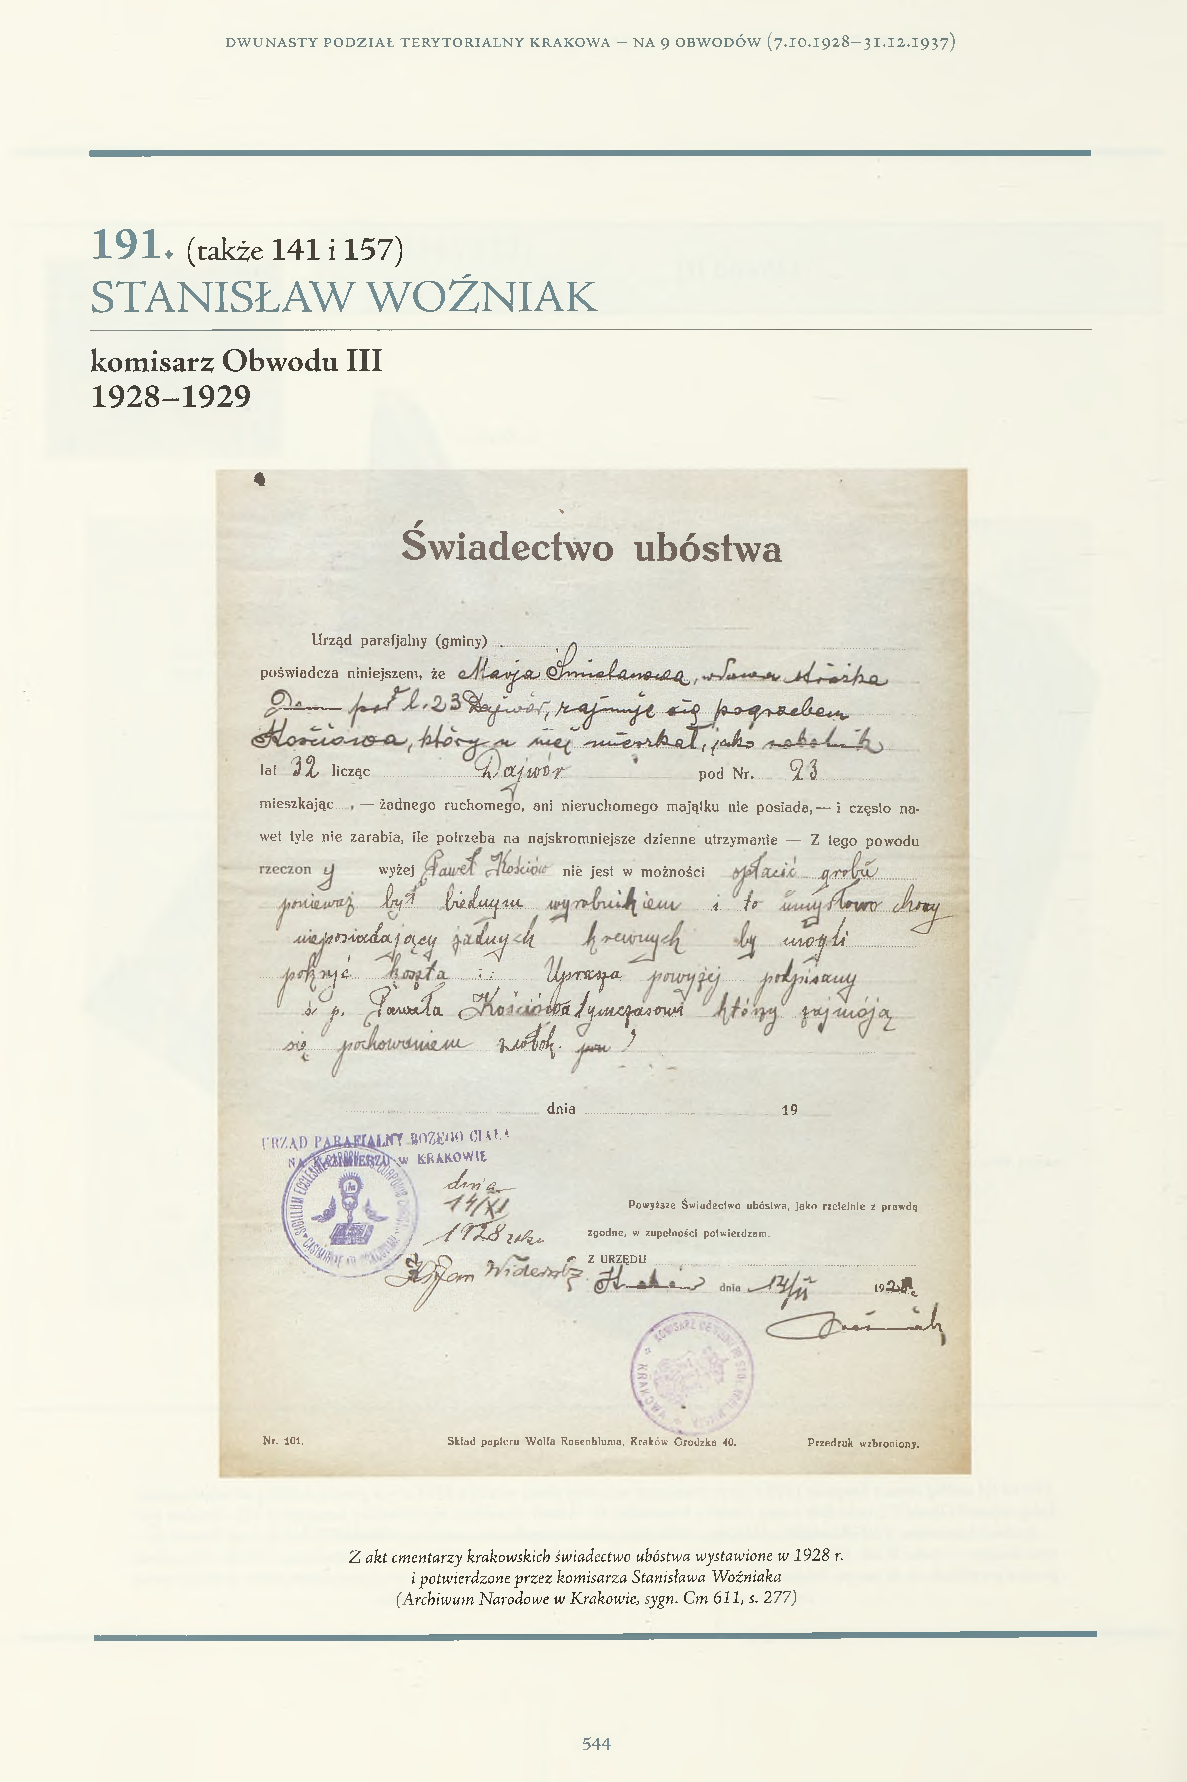 DWUNASTY PODZIAŁ TERYTORIALNY KRAKOWA – NA 9 OBWODÓW (7.10.1928–31.12.1937)
191. (także 141 i 157)
STANISŁAW WOŹNIAK
komisarz Obwodu III
1928–1929
Świadectwo ubóstwa
Urząd parafjalny (gminy)
poświadcza niniejszem, że Marja Śmielanowa, Stróżka
Domu pod l. 23 Dajwór, zajmuje się pogrzebem
Kościowa, który u niej mieszkał, jako robotnik
lat 32 licząc Dajwór pod Nr. 23
mieszkając , — żadnego ruchomego, ani nieruchomego majątku nie posiada, — i często na-
wet tyle nie zarabia, ile potrzeba na najskromniejsze dzienne utrzymanie — Z tego powodu
rzeczon y wyżej Paweł Kościów nie jest w możności opłacić grobu
ponieważ był biednym wyrobnikiem i to umysłowo chory
nieposiadający żadnych krewnych by mogli
pokryć koszta :: Uprasza powyżej podpisany
ś. p. Pawała Kościowa tymczasowi którzy zajmoją
się pochowaniem zwłok.
dnia 19
URZĄD PARAFIALNY BOŻEGO CIAŁA
NA KAZIMIERZU W KRAKOWIE
dnia
14/XI
1928 roku
Powyższe Świadectwo ubóstwa, jako rzetelnie z prawdą
zgodne, w zupełności potwierdzam.
Z URZĘDU
Kraków dnia 14/XI 1928
KOMISARZ OBWODU
Nr. 101. Skład papieru Wolfa Rosenbluma, Kraków Grodzka 40. Przedruk wzbroniony.
Z akt cmentarzy krakowskich świadectwo ubóstwa wystawione w 1928 r.
i potwierdzone przez komisarza Stanisława Woźniaka
(Archiwum Narodowe w Krakowie, sygn. Cm 611, s. 277)
544